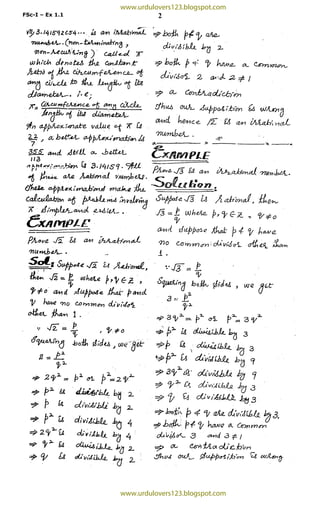 www.urdulovers123.blogspot.com
FSc-I - Ex 1.1
2
3.141592654... is an irrational
number (non-terminating,
non-recurring) called π
which denotes the constant
ratio of the circumference of
any circle to the length of its
diameter i.e;
π = circumference of any circle
length of its diameter
An approximate value of π is
22/7, a better approximation is
355/113 and still a better
approximation is 3.14159. All
of these are rational numbers.
these approximations make the
calculation of problems involving
π simpler and easier.
EXAMPLE
Prove √2 is an irrational
number.
Sol: Suppose √2 is rational,
then √2 = p/q where p, q ∈ Z,
q ≠ 0 and suppose that p and
q have no common divisor
other than 1.
∵ √2 = p/q , q ≠ 0
Squaring both sides, we get
2 = p²/q²
⇒ 2q² = p² or p² = 2q²
⇒ p² is divisible by 2
⇒ p is divisible by 2
⇒ p² is divisible by 4
⇒ 2q² is divisible by 4
⇒ q² is divisible by 2
⇒ q is divisible by 2
⇒ both p & q are
divisible by 2
⇒ both p & q have a common
divisor 2 and 2 ≠ 1
⇒ a contradiction
thus our supposition is wrong
and hence √2 is an irrational
number.
EXAMPLE
Prove √3 is an irrational number.
Solution:
Suppose √3 is rational, then
√3 = p/q where p, q ∈ Z, q ≠ 0
and suppose that p & q have
no common divisor other than
1.
∵ √3 = p/q
Squaring both sides, we get
3 = p²/q²
⇒ 3q² = p² or p² = 3q²
⇒ p² is divisible by 3
⇒ p is divisible by 3
⇒ p² is divisible by 9
⇒ 3q² is divisible by 9
⇒ q² is divisible by 3
⇒ q is divisible by 3
⇒ both p & q are divisible by 3,
⇒ both p & q have a common
divisor 3 and 3 ≠ 1
⇒ a contradiction
Thus our supposition is wrong
www.urdulovers123.blogspot.com